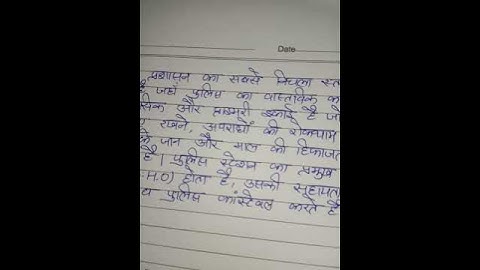 Date
प्रशासन का सबसे निचला स्त
जहां पुलिस का वास्तविक क
और प्राइमरी इकाई है जो
रखने, अपराधों की रोकथाम
जान और माल की हिफाजत
है। पुलिस स्टेशन का प्रमुख
H.O) होता है, उसकी सहायता
पुलिस कांस्टेबल करते हैं